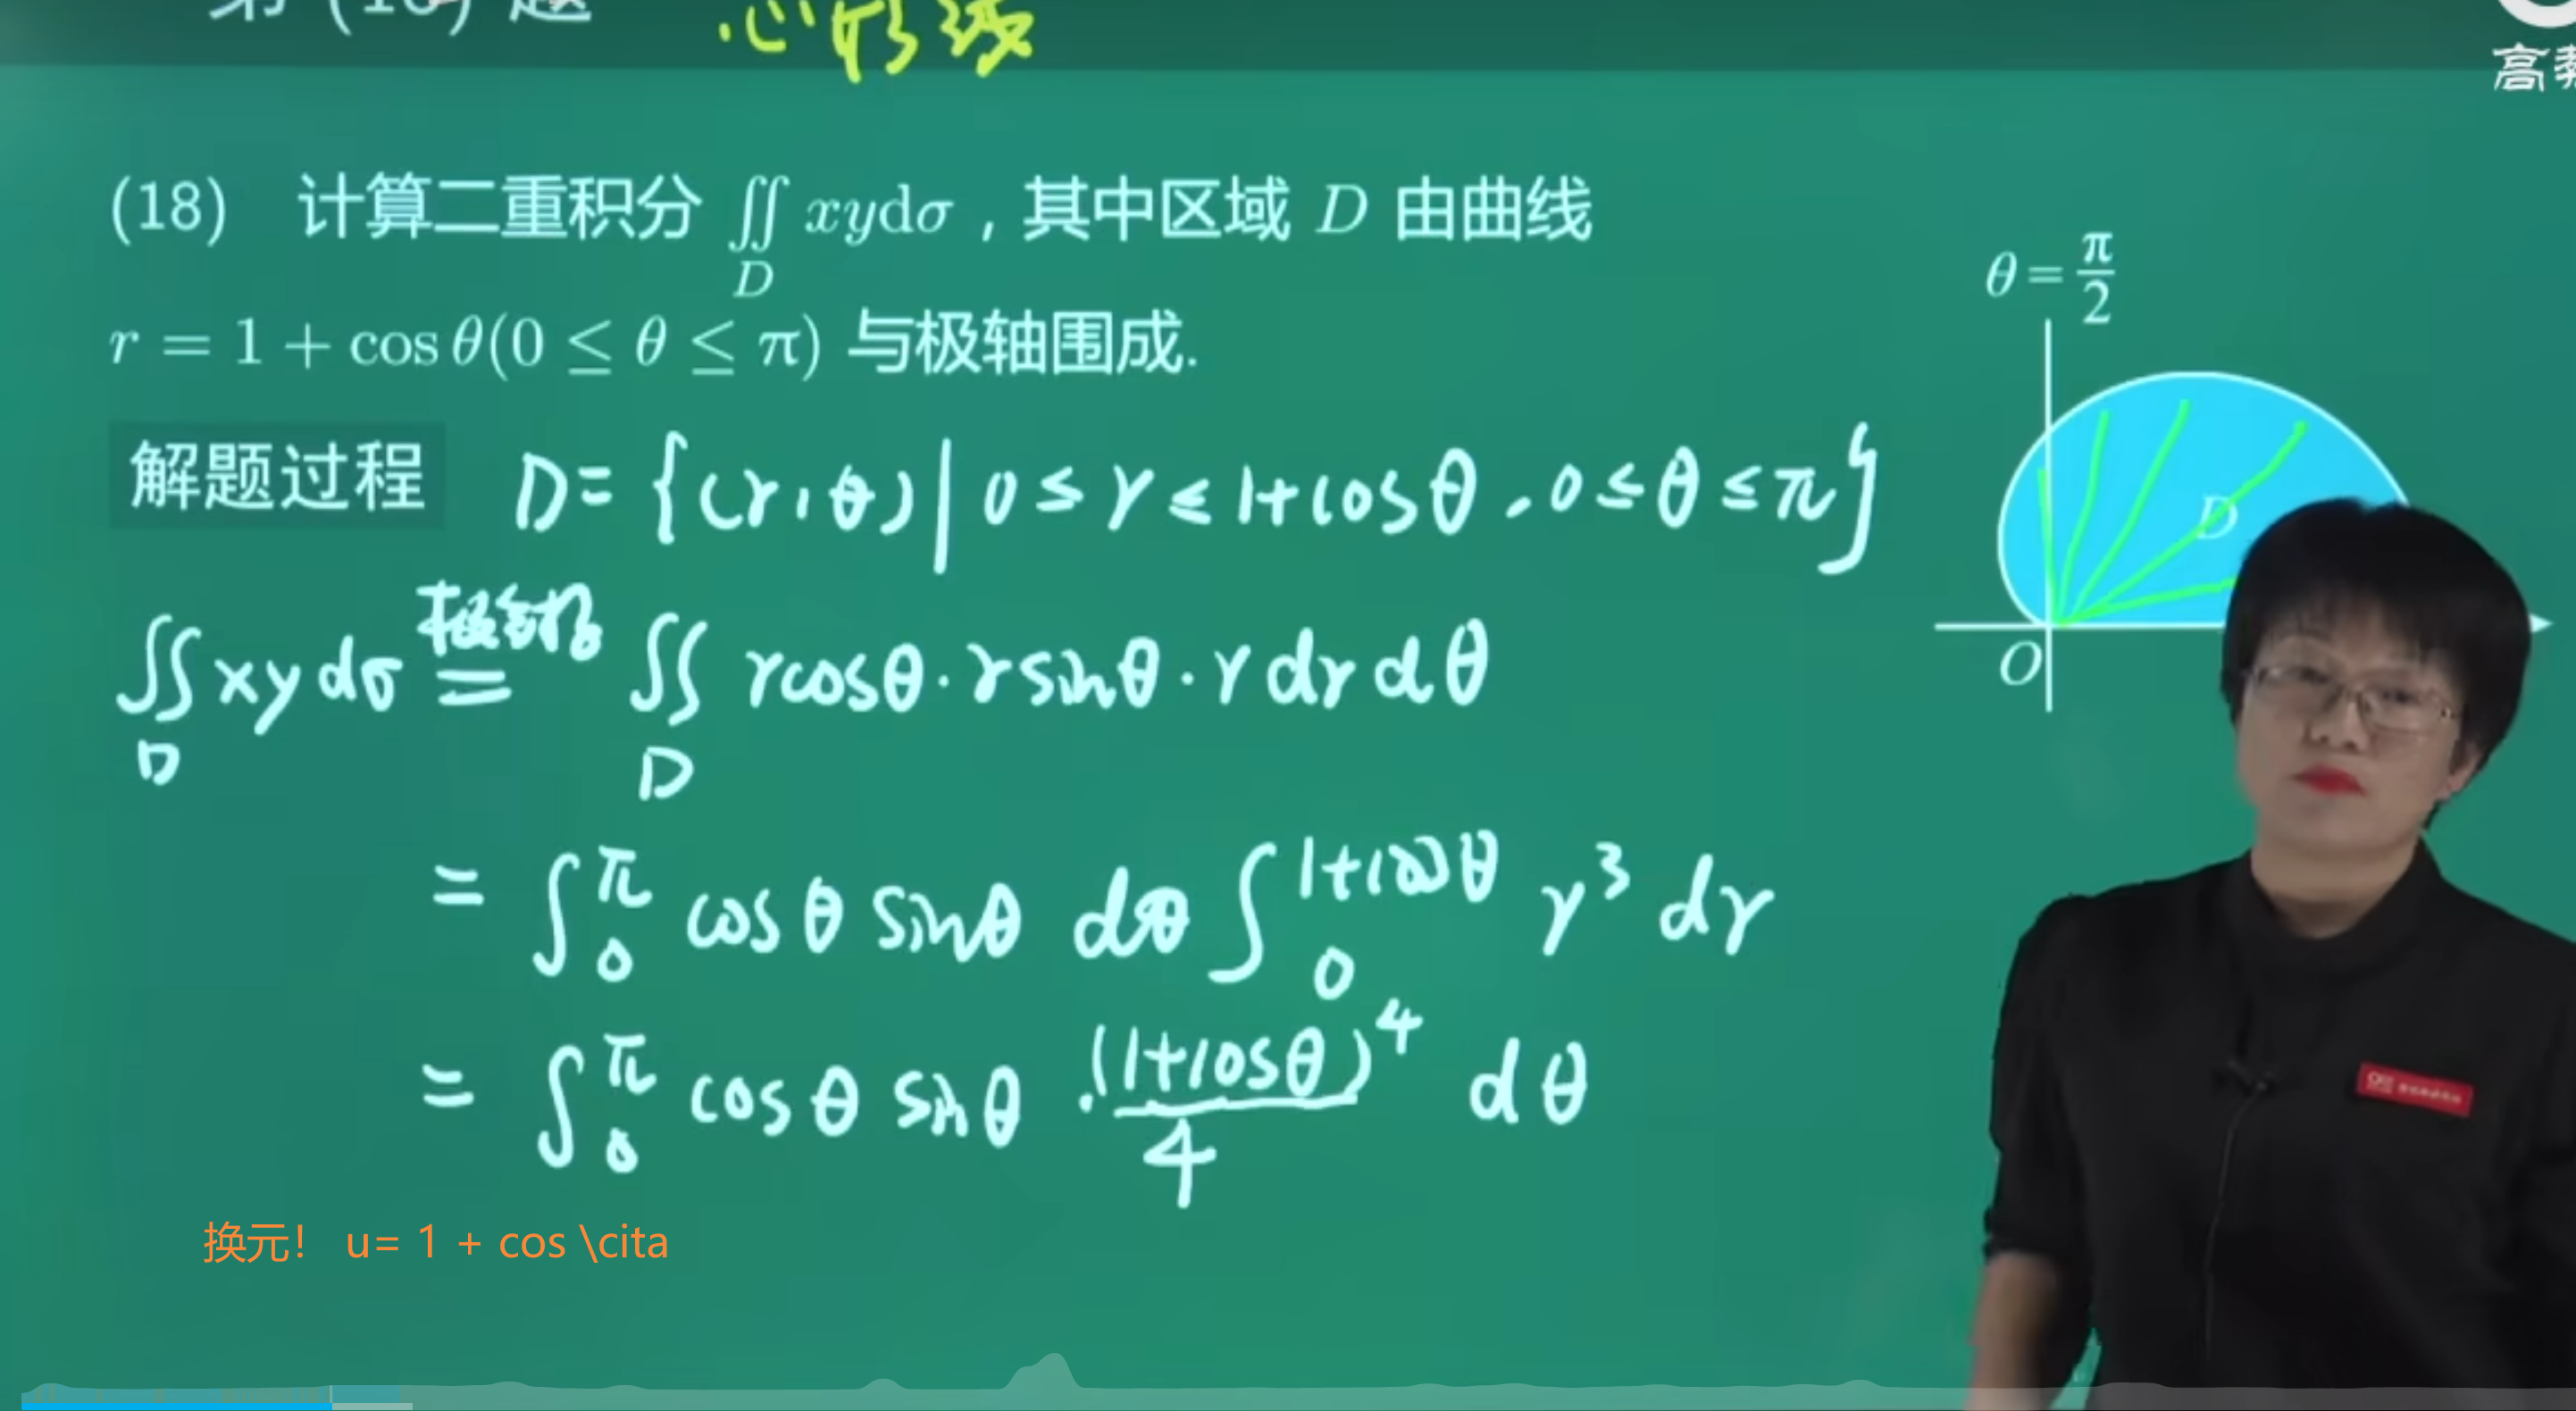 第 (18) 题 心形线
高教
(18) 计算二重积分 ∬_D xydσ，其中区域 D 由曲线
r = 1 + cos θ(0 ≤ θ ≤ π) 与极轴围成.
θ = π/2
D
O
解题过程 D = {(r, θ) | 0 ≤ r ≤ 1+cosθ, 0 ≤ θ ≤ π}
∬_D xy dσ 极坐标 = ∬_D rcosθ · rsinθ · r dr dθ
= ∫_0^π cosθ sinθ dθ ∫_0^{1+cosθ} r^3 dr
= ∫_0^π cosθ sinθ · (1+cosθ)^4/4 dθ
换元！ u= 1 + cos \cita